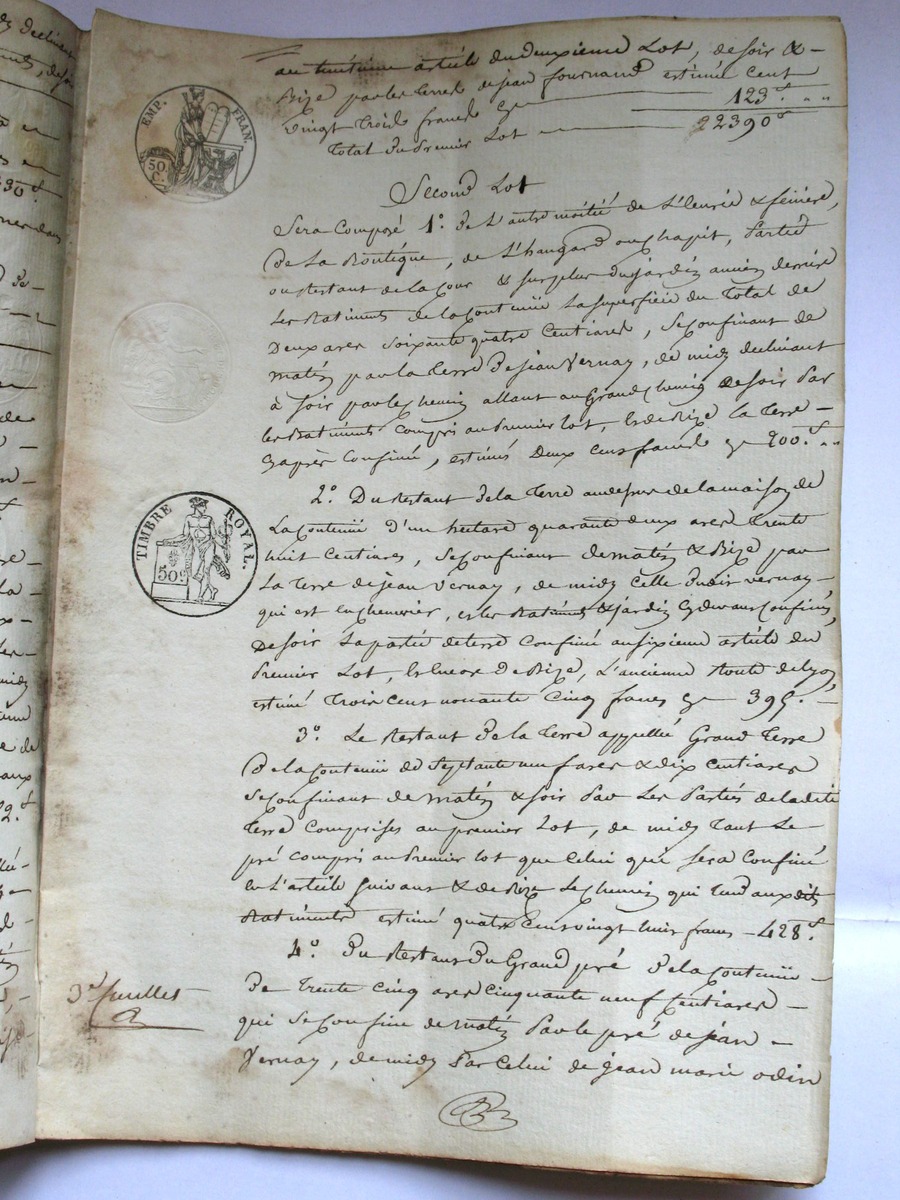 au treizième article du deuxieme Lot, de soir &
Bize par les terres de jean fournand estimé Cent
vingt Trois francs cy — 123.f " "
Total du Premier Lot — 22390.f
Second Lot
Sera Composé 1.° de L'autre moitié de L'Ecurie & feniere,
de La Boutique, de L'hangard ou Chapit, Partie
ou Restant de la Cour & surplus du jardin ancien derrière
Les Batiments de la Contenüe La superficie du Total de
Deux ares Soixante quatre Centiares, se Confinant de
matin par la terre de jean Vernay, de midy declinant
à soir par le chemin allant au Grand chemin de soir Par
les Batiments Compris au Premier Lot, & de Bize la Terre
Cy après Confinée, estimés Deux Cens francs cy 200.f " "
2.° Du Restant de la Terre au dessus de la maison de
La Contenüe d'un hectare quarante deux ares Trente
huit Centiares, se Confinant de matin & Bize par
La Terre de jean Vernay, de midy Celle dudit vernay
qui est en chenevier, & les Batiments & jardin Cy devant Confinés,
De soir La partie de terre Confinée au sixieme article du
Premier Lot, & Encor de Bize, L'ancienne Route de Lyon
estimé Trois Cent nonante Cinq francs cy — 395.f —
3.° Le Restant de la Terre appellée Grand Terre
de la Contenüe de Septante neuf ares & dix Centiares
se Confinant de matin & soir Par Les Parties de ladite
Terre Comprises au premier Lot, de midy Tant Le
pré Compris au Premier lot que Celui qui sera Confiné
en L'article suivant & de Bize Le chemin qui Tend auxdits
Batiments estimé quatre Cens vingt huit francs — 428.f
4.° Du Restant du Grand pré de la Contenüe
de Trente Cinq ares Cinquante neuf Centiares
qui se Confine de matin Par le pré de jean
Vernay, de midy Par Celui de jean marie odin
EMP. FRAN.
50 C.
TIMBRE ROYAL.
50c
3.e feuillet